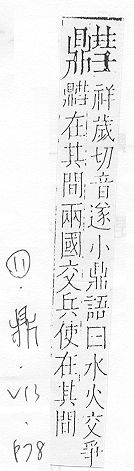 䵻
祥歲切音遂小鼎語曰水火交爭
䵻在其間兩國交兵使在其間
⑪·鼎·V13·P78